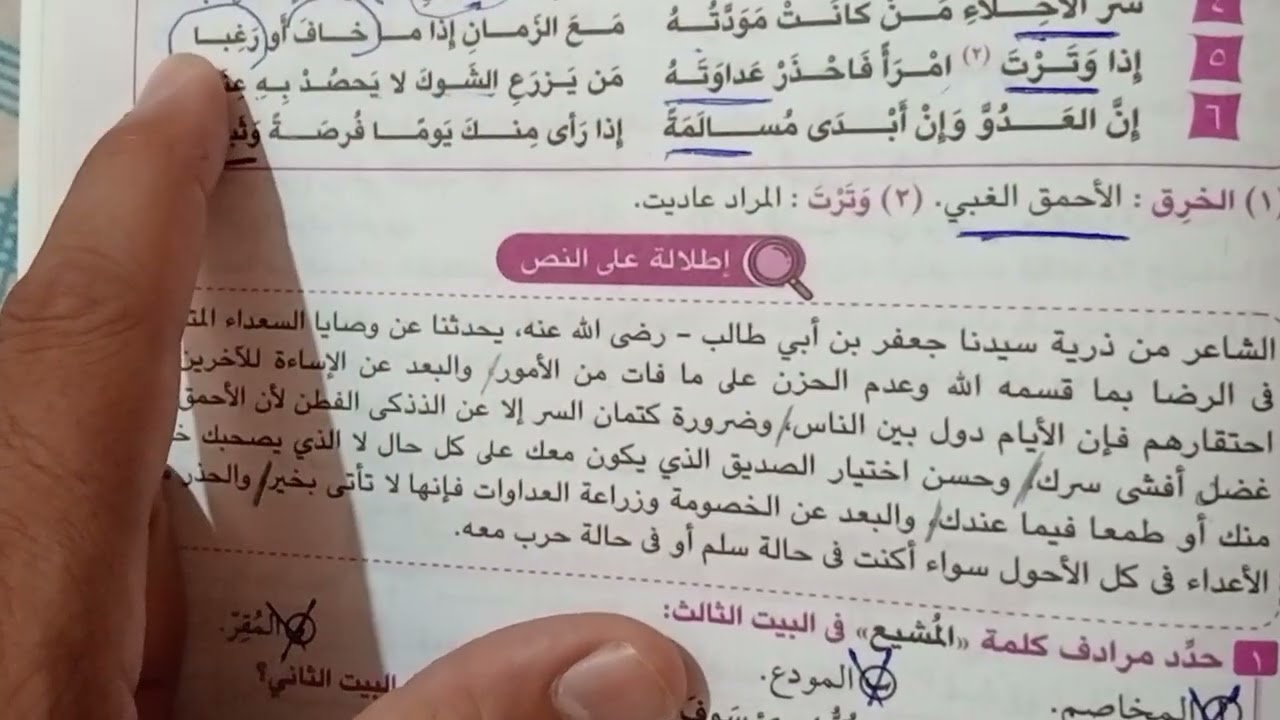 ٤ شر الأخلاء مَـنْ كانَـتْ مَوَدَّتُـهُ مَـعَ الزَمـانِ إِذا مـا خـافَ أَو رَغِبـا
٥ إِذا وَتَـرْتَ (٢) امْـرَأً فَاحْـذَرْ عَداوَتَـهُ مَن يَـزرَعِ الشَـوكَ لا يَحصُـدْ بِـهِ
٦ إِنَّ العَـدُوَّ وَإِنْ أَبْـدَى مُسـالَمَةً إِذا رَأى مِنـكَ يَومًـا فُرصَـةً
(١) الخرِق : الأحمق الغبي. (٢) وَتَرْتَ : المراد عاديت.
إطلالة على النص
الشاعر من ذرية سيدنا جعفر بن أبي طالب - رضى الله عنه، يحدثنا عن وصايا السعداء
فى الرضا بما قسمه الله وعدم الحزن على ما فات من الأمور، والبعد عن الإساءة للآخرين
احتقارهم فإن الأيام دول بين الناس، وضرورة كتمان السر إلا عن الذذكى الفطن لأن الأحمق
غضل أفشى سرك، وحسن اختيار الصديق الذي يكون معك على كل حال لا الذي يصحبك
منك أو طمعا فيما عندك، والبعد عن الخصومة وزراعة العداوات فإنها لا تأتى بخير، والحذر
الأعداء فى كل الأحول سواء أكنت فى حالة سلم أو فى حالة حرب معه.
١ حدِّد مرادف كلمة «المُشيع» فى البيت الثالث:
المخاصم. المودع. المُقِرّ.
البيت الثاني؟